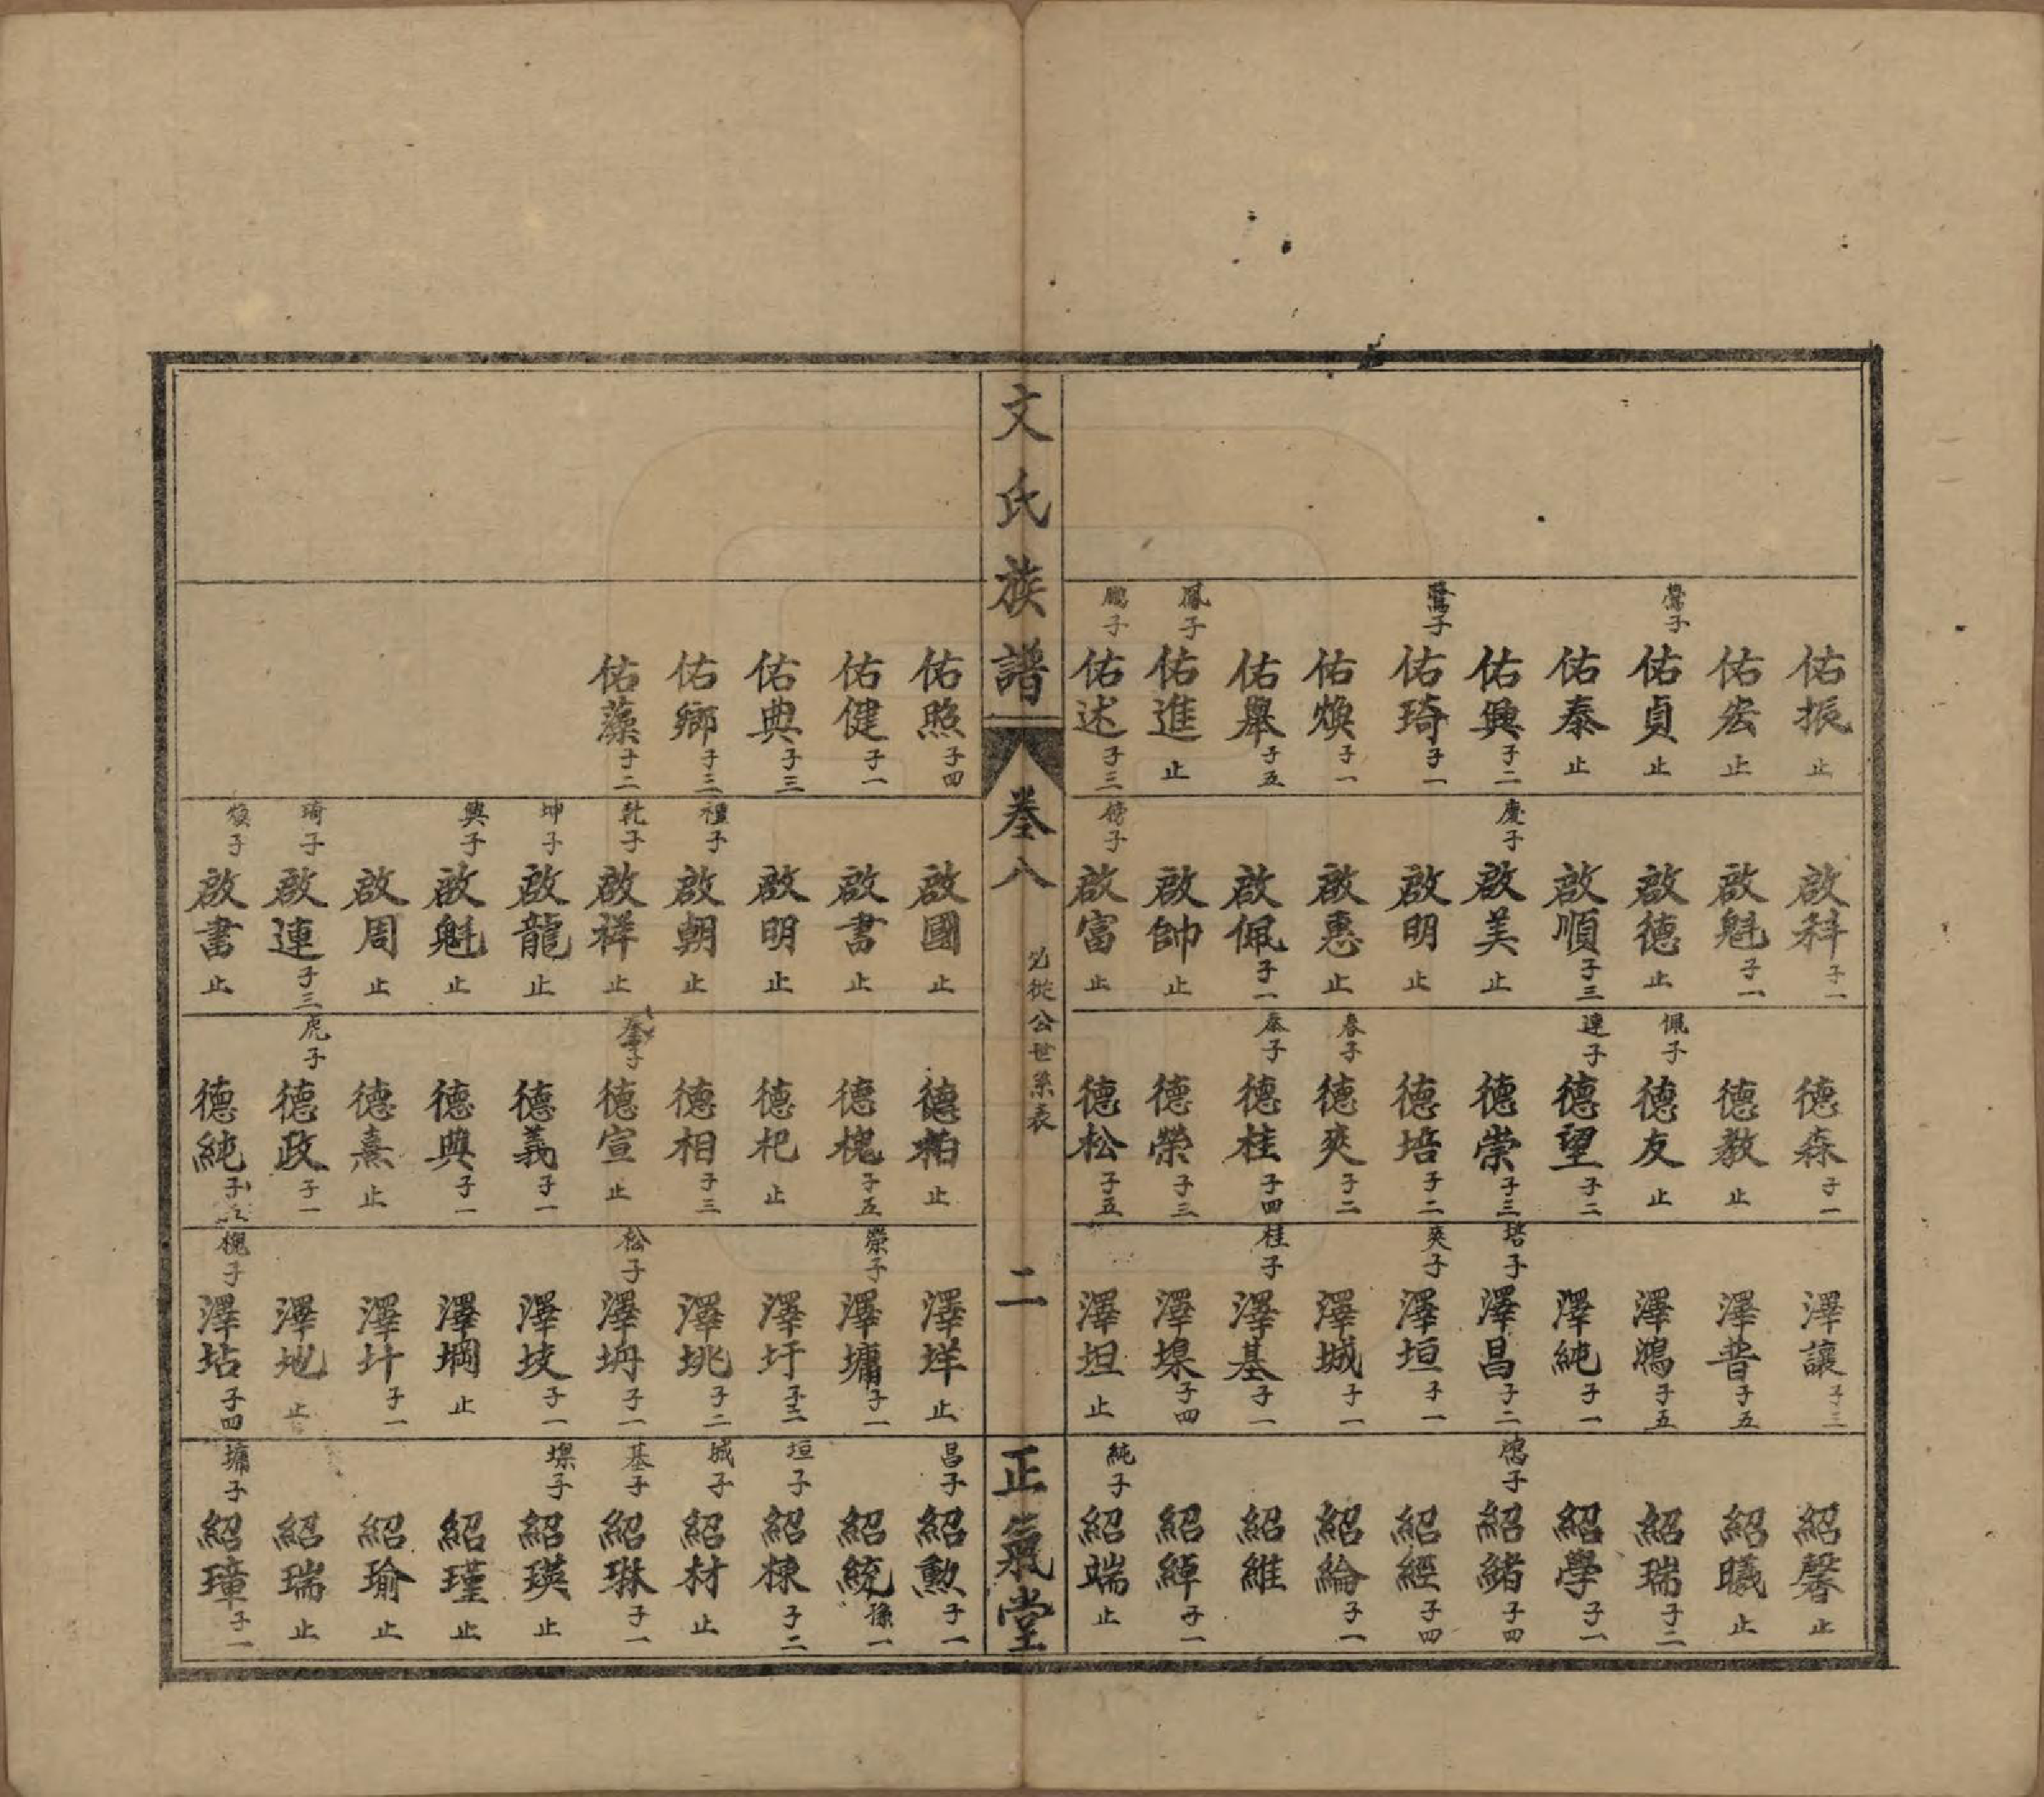 佑振 止
佑宏 止
鶯子 佑貞 止
佑泰 止
佑興 子二
鷺子 佑琦 子一
佑煥 子一
佑舉 子五
鳳子 佑進 止
鵰子 佑述 子三
啟科 子一
啟魁 子一
啟德 止
啟順 子三
慶子 啟美 止
啟明 止
啟惠 止
啟佩 子一
啟帥 止
榜子 啟富 止
德森 子一
德教 止
佩子 德友 止
連子 德望 子二
德崇 子三
德培 子二
春子 德爽 子二
泰子 德桂 子四
德榮 子三
德松 子五
澤讓 子三
澤普 子五
澤鴻 子五
澤純 子一
培子 澤昌 子二
爽子 澤垣 子一
澤城 子一
桂子 澤基 子一
澤堒 子四
澤坦 止
紹馨 止
紹曦 止
紹瑞 子二
紹學 子一
鴻子 紹緒 子四
紹經 子四
紹綸 子一
紹維
紹綽 子一
純子 紹端 止
文氏族譜 卷八 必從公世系表 二 正氣堂
佑照 子四
佑健 子一
佑典 子三
佑鄉 子三
佑藻 子二
啟國 止
啟書 止
啟明 止
禮子 啟朝 止
乾子 啟祥 止
坤子 啟龍 止
興子 啟魁 止
啟周 止
琦子 啟連 子三
煥子 啟書 止
德柏 止
德槐 子五
德杞 止
德相 子三
德宣 止
德義 子一
德典 子一
德熹 止
虎子 德政 子一
德純
澤垟 止
榮子 澤墉 子一
澤圩 子二
澤垗 子二
松子 澤坍 子一
澤坡 子一
澤堈 止
澤圤 子一
澤地 止
槐子 澤坫 子四
昌子 紹勲 子一
紹統 孫一
垣子 紹棟 子二
城子 紹材 止
基子 紹琳 子一
堒子 紹瑛 止
紹瑾 止
紹瑜 止
紹瑞 止
墉子 紹璋 子一